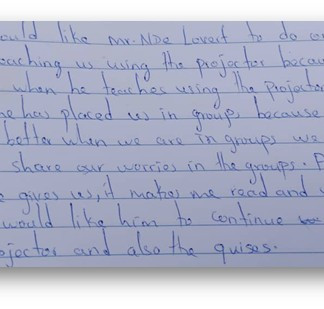 ould like Mr. NDe Lovert to do con
eaching us using the projector becau
when he teaches using the Projector
he has placed us in group, because
better when we are in groups we
share our worries in the groups. F
e gives us, it makes me read and
would like him to continue
ojector and also the quises.